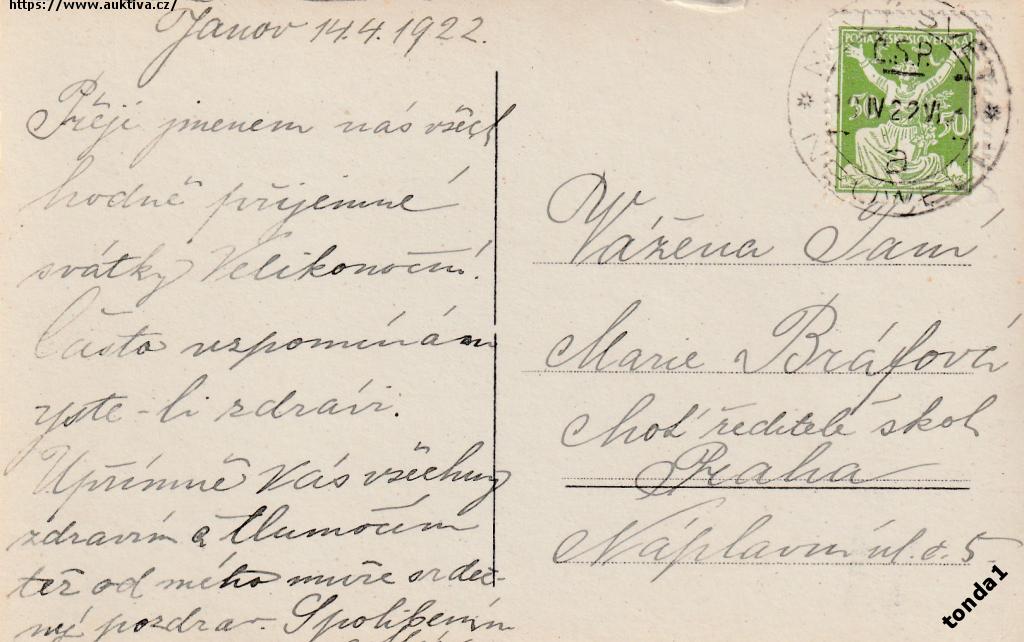 https://www.auktiva.cz/
Janov 14.4.1922.
Přeji jmenem nás všech
hodně přijemné
svátky Velikonoční.
Často vzpomínám
jste-li zdrávi.
Upřímně Vás všechny
zdravím a tlumočím
též od mého muže srdeč-
ný pozdrav. S políbením
POŠTA ČESKOSLOVENSKÁ
Č.S.P.
50 50
15 IV 22 VI
a
Vážená Paní
Marie Bráfová
choť ředitele škol
Praha
Náplavní ul. č. 5
tonda1